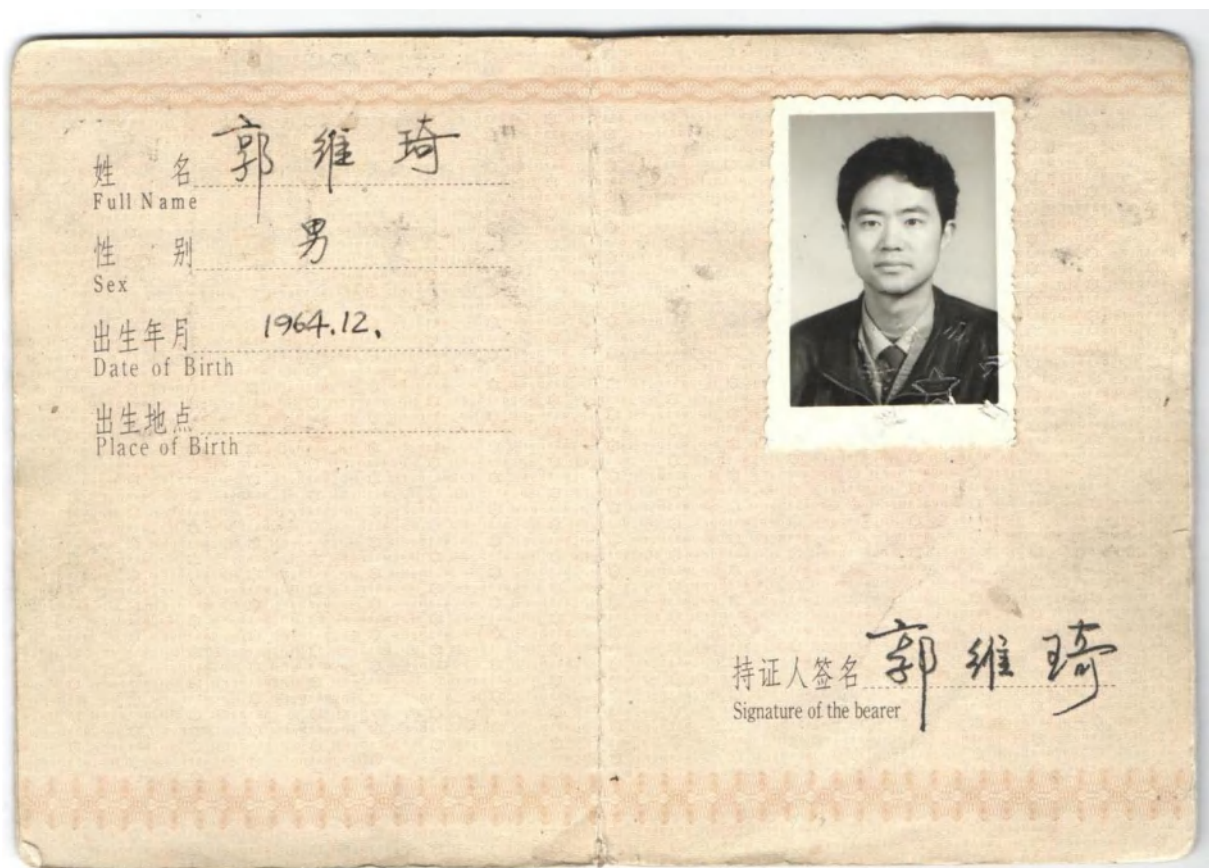 姓名 郭维琦
Full Name
性别 男
Sex
出生年月 1964.12.
Date of Birth
出生地点
Place of Birth
持证人签名 郭维琦
Signature of the bearer